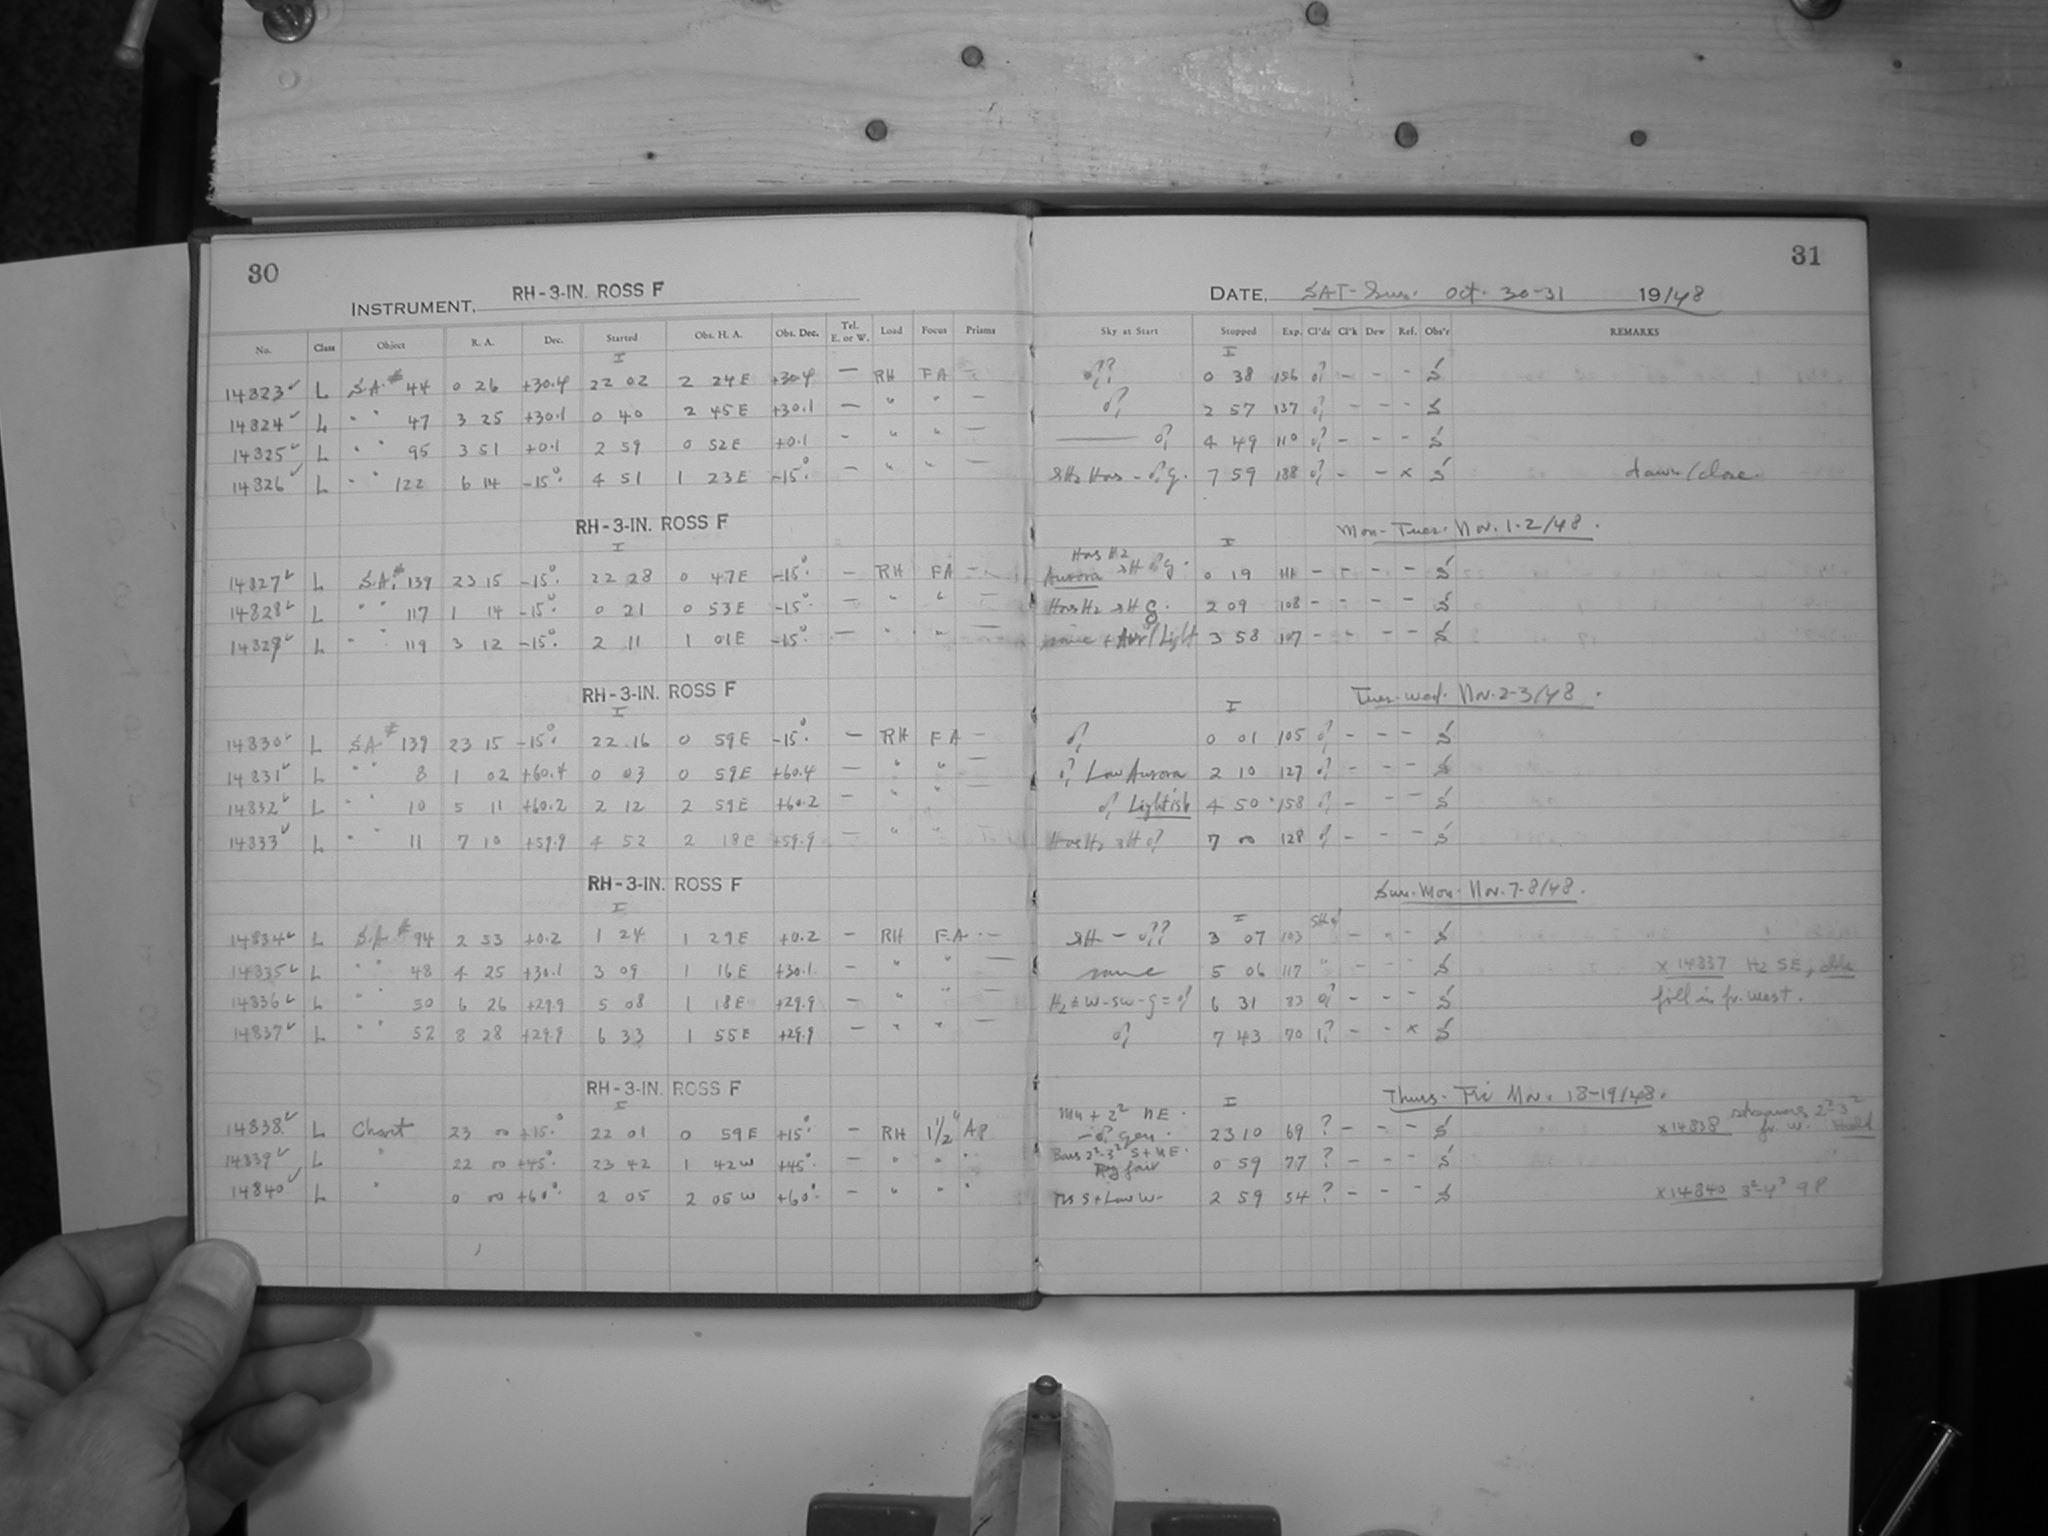 30
INSTRUMENT, RH-3-IN. ROSS F
No. Class Object R. A. Dec. Started Obs. H. A. Obs. Dec. Tel. E. or W. Load Focus Prisms
I
14823 L S.A.# 44 0 26 +30.4 22 02 2 24 E +30.4 — RH FA —
14824 L " " 47 3 25 +30.1 0 40 2 45 E +30.1 — " " —
14825 L " " 95 3 51 +0.1 2 59 0 52 E +0.1 — " " —
14826 L " " 122 6 14 -15° 4 51 1 23 E -15° — " " —
RH-3-IN. ROSS F
I
14827 L S.A.# 139 23 15 -15° 22 28 0 47 E -15° — RH FA —
14828 L " " 117 1 14 -15° 0 21 0 53 E -15° — " " —
14829 L " " 119 3 12 -15° 2 11 1 01 E -15° — " " —
RH-3-IN. ROSS F
I
14830 L S.A.# 139 23 15 -15° 22 16 0 59 E -15° — RH FA —
14831 L " " 8 1 02 +60.4 0 03 0 59 E +60.4 — " " —
14832 L " " 10 5 11 +60.2 2 12 2 59 E +60.2 — " " —
14833 L " " 11 7 10 +59.9 4 52 2 18 E +59.9 — " " —
RH-3-IN. ROSS F
I
14834 L S.A.# 94 2 53 +0.2 1 24 1 29 E +0.2 — RH F.A. —
14835 L " " 48 4 25 +30.1 3 09 1 16 E +30.1 — " " —
14836 L " " 50 6 26 +29.9 5 08 1 18 E +29.9 — " " —
14837 L " " 52 8 28 +29.9 6 33 1 55 E +29.9 — " " —
RH-3-IN. ROSS F
I
14838 L Chart 23 00 +15° 22 01 0 59 E +15° — RH 1½" AP
14839 L " 22 00 +45° 23 42 1 42 W +45° — " " "
14840 L " 0 00 +60° 2 05 2 05 W +60° — " " "
31
DATE, SAT-Sun. Oct. 30-31 19/48
Sky at Start Stopped Exp. Cl'ds Cl'k Dew Ref. Obs'r REMARKS
I
0 38 156 — — — S
2 57 137 — — — S
4 49 110 — — — S
7 59 188 — — x S dawn/close.
Mon-Tues. Nov. 1-2/48.
I
Hors Hz
Aurora 0 19 111 — — — — S
Hors Hz sH g. 2 09 108 — — — — S
same + Aur/Light 3 58 107 — — — — S
Tues-Wed. Nov. 2-3/48.
I
0 01 105 — — — S
Low Aurora 2 10 127 — — — S
Lightish 4 50 158 — — — S
7 00 128 — — — S
Sun-Mon. Nov. 7-8/48.
I
3 07 103 — — — S
same 5 06 117 " — — — S x 14837 Hz SE,
6 31 83 — — — S fill in fr. west.
7 43 70 1? — — x S
Thurs-Fri Nov. 18-19/48.
I
23 10 69 ? — — — S x14838 2²-3² fr. W.
0 59 77 ? — — — S
S + Low W- 2 59 54 ? — — — S x14840 3²-4²